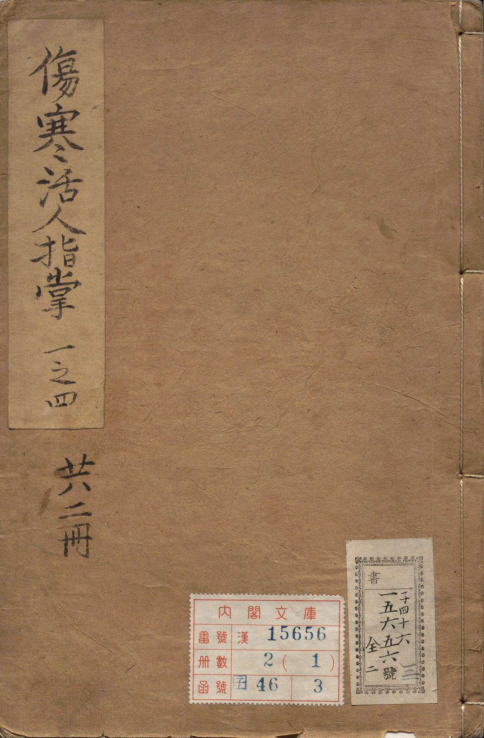 傷寒活人指掌 一之四
共二冊
內閣文庫
番號 漢 15656
冊數 2(1)
函號 子46 3
書
子四十六
一五六五六號
全二
三